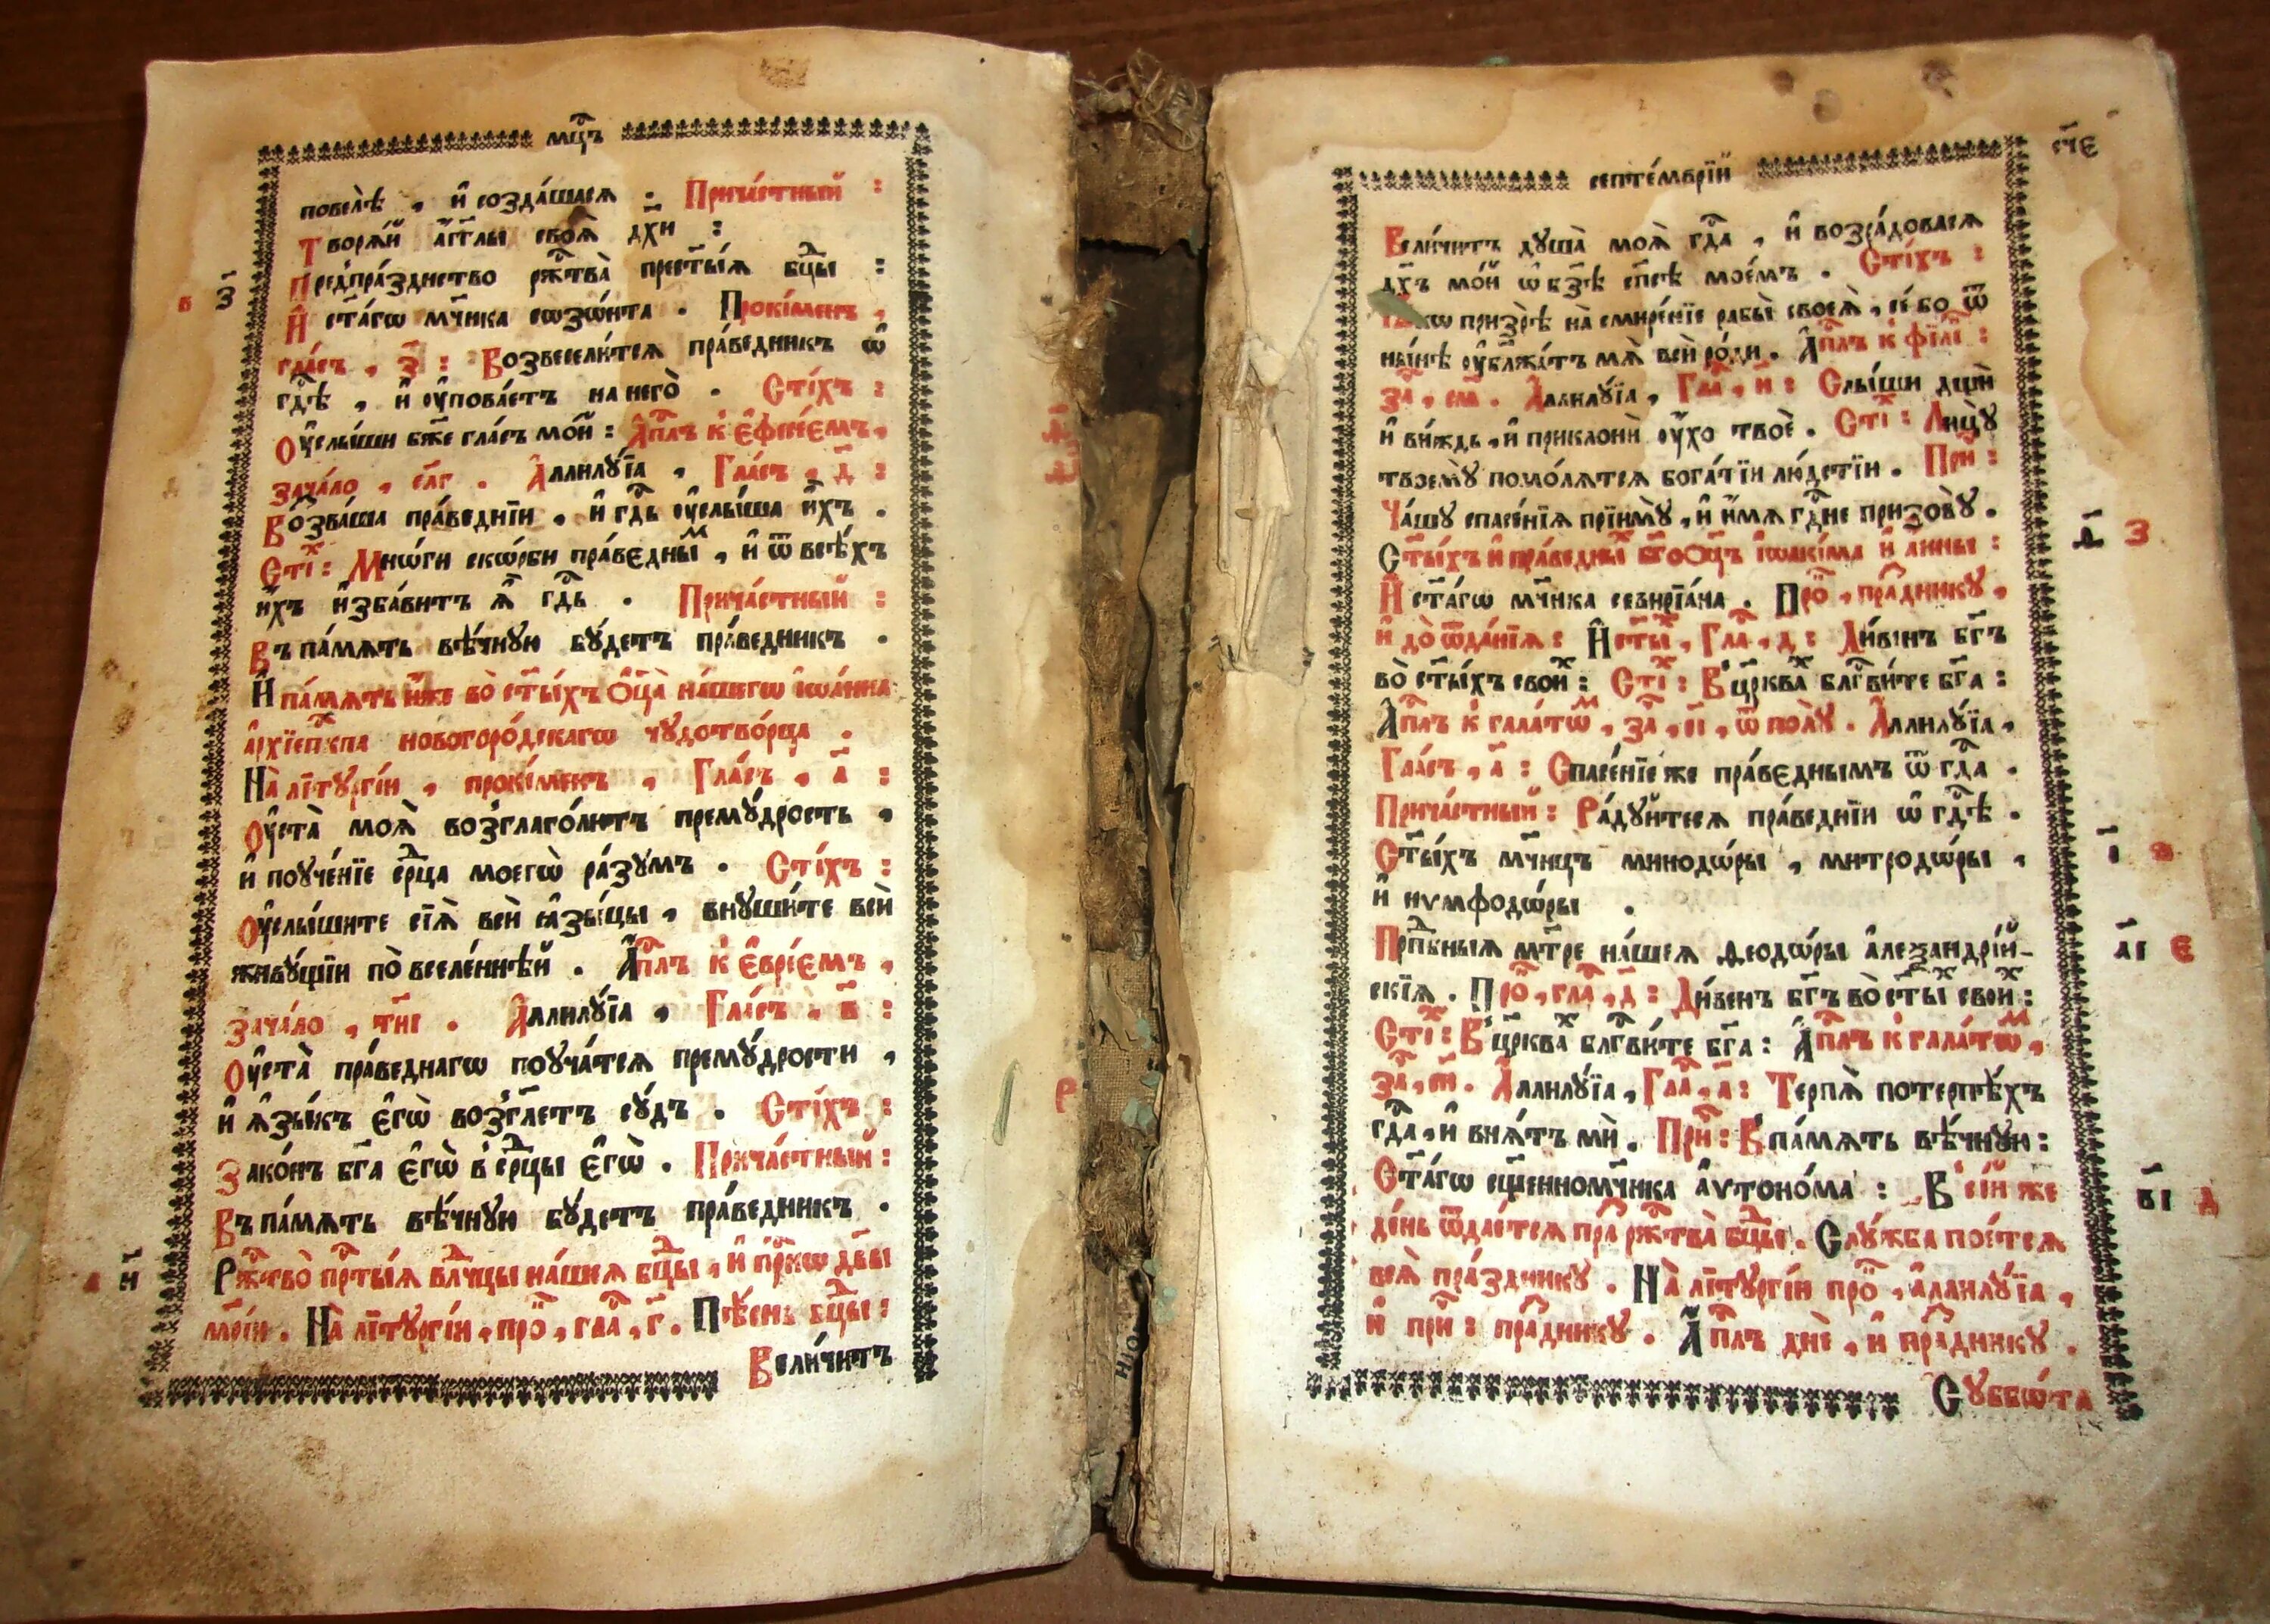 мцⷭ҇ъ
повелѣ , и҆ созда́шася . Прича́стный :
Творѧ́й а҆́гг҃лы своѧ̀ дх҃и :
в҃ з҃ Предпра́зднство ржⷭ҇тва̀ прест҃ы́ѧ бцⷣы :
И҆ ст҃а́гѡ мч҃нка созѡ́нта . Проки́менъ ,
гла́съ , з҃ : Возвесели́тсѧ пра́ведникъ ѡ҆
гдⷭ҇ѣ , и҆ ᲂу҆пова́етъ на него̀ . Сті́хъ :
Оу҆слы́ши бж҃е гла́съ мо́й : А҆пⷭ҇лъ к̾ є҆фесе́ємъ ,
зача́ло , сл҃г . А҆ллилꙋ́їа , Гла́съ , д҃ :
Возва́ша пра́веднїи , и҆ гдⷭ҇ь ᲂу҆слы́ша и҆́хъ .
Стїⷯ : Мнѡ́ги скѡ́рби пра́вєдныⷨ , и҆ ѿ всѣ́хъ
и҆́хъ и҆зба́витъ ѧ҆̀ гдⷭ҇ь . Прича́стный :
Въ па́мѧть вѣ́чнꙋю бꙋ́детъ пра́ведникъ .
И҆ па́мѧть и҆́же во ст҃ы́хъ О҆ц҃а̀ на́шегѡ і҆ѡа́нна
а҆рхїепⷭ҇кпа новогоро́дскагѡ чꙋдотво́рца .
На̀ лїтꙋргі́и , проки́менъ , Гла́съ , а҃ :
Оу҆ста̀ моѧ̀ возглаго́лютъ премꙋ́дрость ,
и҆ поꙋче́нїе срⷣца моегѡ̀ ра́зꙋмъ . Сті́хъ :
Оу҆слы́шите сїѧ̀ всѝ ꙗ҆зы́цы , внꙋши́те всѝ
живꙋ́щїи по̀ вселе́ннѣй . А҆пⷭ҇лъ к̾ є҆вре́ємъ ,
зача́ло , тн҃і . А҆ллилꙋ́їа , Гла́съ , в҃ :
Оу҆ста̀ пра́веднагѡ поꙋча́тсѧ премꙋ́дрости ,
и҆ ѧ҆зы́къ є҆гѡ̀ возгл҃етъ сꙋ́дъ . Сті́хъ :
Зако́нъ бг҃а є҆гѡ̀ в̾ срⷣцы є҆гѡ̀ . Прича́стный :
Въ па́мѧть вѣ́чнꙋю бꙋ́детъ пра́ведникъ .
н҃ Ржⷭ҇тво̀ прⷭ҇тыѧ влⷣчцы на́шеѧ бцⷣы , и҆ прⷭ҇нѡ дв҃ы
мр҃іи . На̀ лїтꙋргі́и , проⷦ҇ , глаⷭ҇ , г҃ . Пѣ́снь бцⷣы :
Вели́читъ
септе́мврїй
сч҃є
Вели́читъ дꙋша̀ моѧ̀ гдⷭ҇а , и҆ возра́довасѧ
дх҃ъ мо́й ѡ҆ бз҃ѣ сп҃сѣ мое́мъ . Сті́хъ :
Ꙗ҆́кѡ призрѣ̀ на̀ смире́нїе рабы̀ своеѧ̀ , се́ бо ѿ
ны́нѣ ᲂу҆блжа́тъ мѧ̀ всѝ ро́ди . А҆пⷭ҇лъ к̾ філіⷫ :
заⷱ҇ , см҃ . А҆ллилꙋ́їа , Глаⷭ҇ , и҃ : Слы́ши дщѝ
и҆ ви́ждь , и҆ приклонѝ ᲂу҆́хо твоѐ . Стїⷯ : Лицꙋ̀
твоемꙋ̀ помо́лѧтсѧ бога́тїи лю́дстїи . Приⷱ҇ :
Ча́шꙋ спасе́нїѧ прїимꙋ̀ , и҆ и҆́мѧ гдⷭ҇не призовꙋ̀ .
ѳ҃ з҃ Ст҃ы́хъ и҆ пра́ведныⷯ бг҃оѻц҃ъ і҆ѡаки́ма и҆ а҆́нны :
И҆ ст҃а́гѡ мч҃нка севирїа́на . Проⷦ҇ , праⷥдникꙋ ,
и҆ до̀ ѿда́нїѧ : И҆ ст҃ыⷯ , Глаⷭ҇ , д҃ : Ди́венъ бг҃ъ
во̀ ст҃ы́хъ своиⷯ : Стїⷯ : В̾ цр҃кваⷯ блгⷭ҇ви́те бг҃а :
А҆пⷭ҇лъ к̾ гала́тѡⷨ , заⷱ҇ , с҃і , ѿ полꙋ̀ . А҆ллилꙋ́їа ,
Гла́съ , а҃ : Спасе́нїе же пра́вєднымъ ѿ гдⷭ҇а .
Прича́стный : Ра́дꙋйтесѧ пра́веднїи ѡ҆ гдⷭ҇ѣ .
і҃ Ст҃ы́хъ мч҃ницъ минодѡ́ры , митродѡ́ры ,
и҆ нѵмфодѡ́ры .
а҃і є҃ Прпⷣбныѧ мт҃ре на́шеѧ ѳеодѡ́ры а҆леѯандрі́й-
скїѧ . Проⷦ҇ , глаⷭ҇ , д҃ : Ди́венъ бг҃ъ во̀ ст҃ыⷯ своиⷯ :
Стїⷯ : В̾ цр҃кваⷯ блгⷭ҇ви́те бг҃а : А҆пⷭ҇лъ к̾ гала́тѡⷨ ,
заⷱ҇ , си҃ . А҆ллилꙋ́їа , Глаⷭ҇ , а҃ : Терпѧ̀ потерпѣ́хъ
гдⷭ҇а , и҆ внѧ́тъ мѝ . Приⷱ҇ : В̾ па́мѧть вѣ́чнꙋю :
в҃і д҃ Ст҃а́гѡ сщ҃енномч҃нка а҆ѵтоно́ма : В̾ сі́й же
де́нь ѿдае́тсѧ праⷥ ржⷭ҇тва̀ бцⷣы . Слꙋ́жба пое́тсѧ
всѧ̀ пра́здникꙋ . На̀ лїтꙋргі́и проⷦ҇ , а҆ллилꙋ́їа ,
и҆ приⷱ҇ : праⷥдникꙋ . А҆пⷭ҇лъ днѐ , и҆ праⷥдникꙋ .
Сꙋббѡ́та